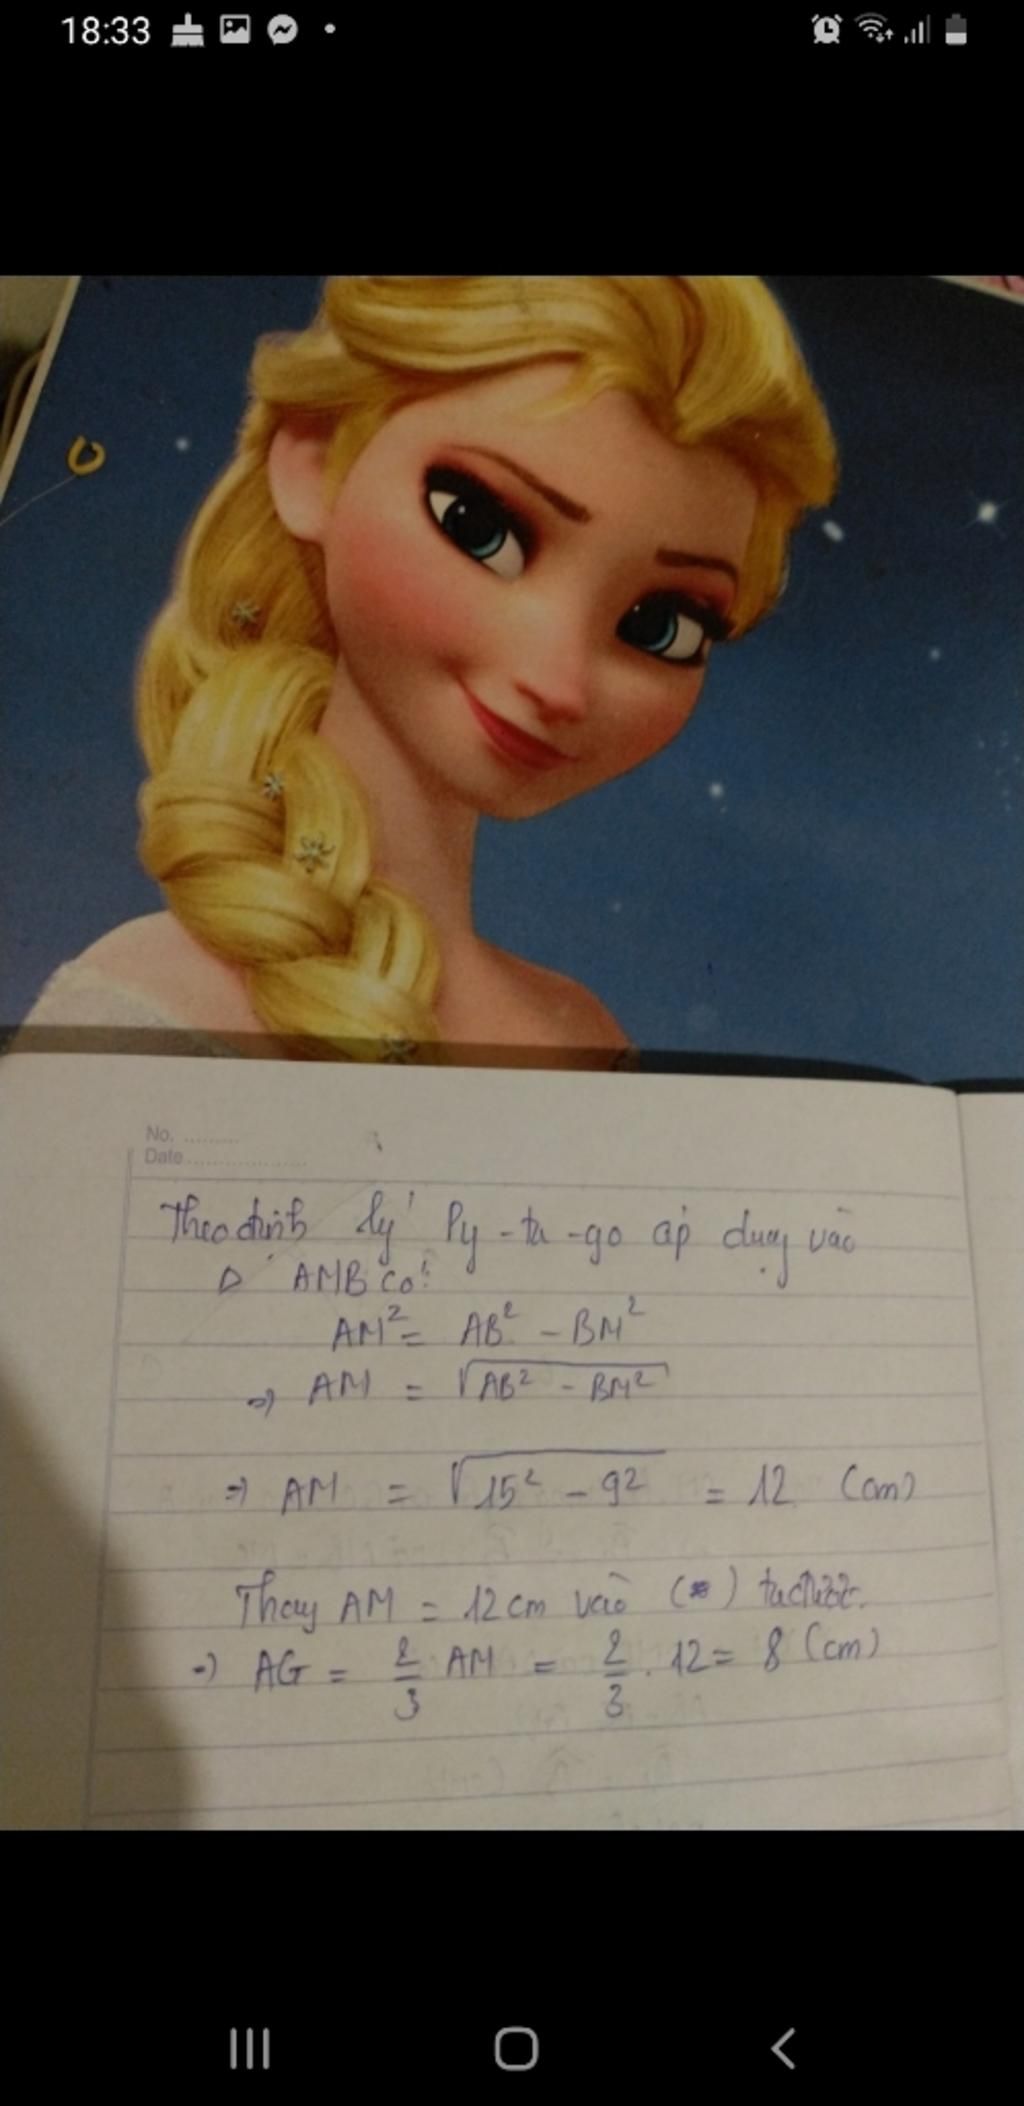 18:33
No. .........
Date ...................
Theo định lý Py-ta-go áp dụng vào
Δ AMB có:
AM² = AB² - BM²
=> AM = √AB² - BM²
=> AM = √15² - 9² = 12 (cm)
Thay AM = 12cm vào (*) ta được.
=> AG = 2/3 AM = 2/3 . 12 = 8 (cm)